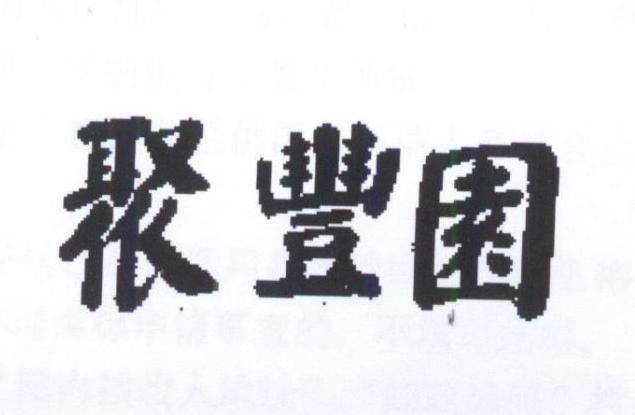 聚豐園